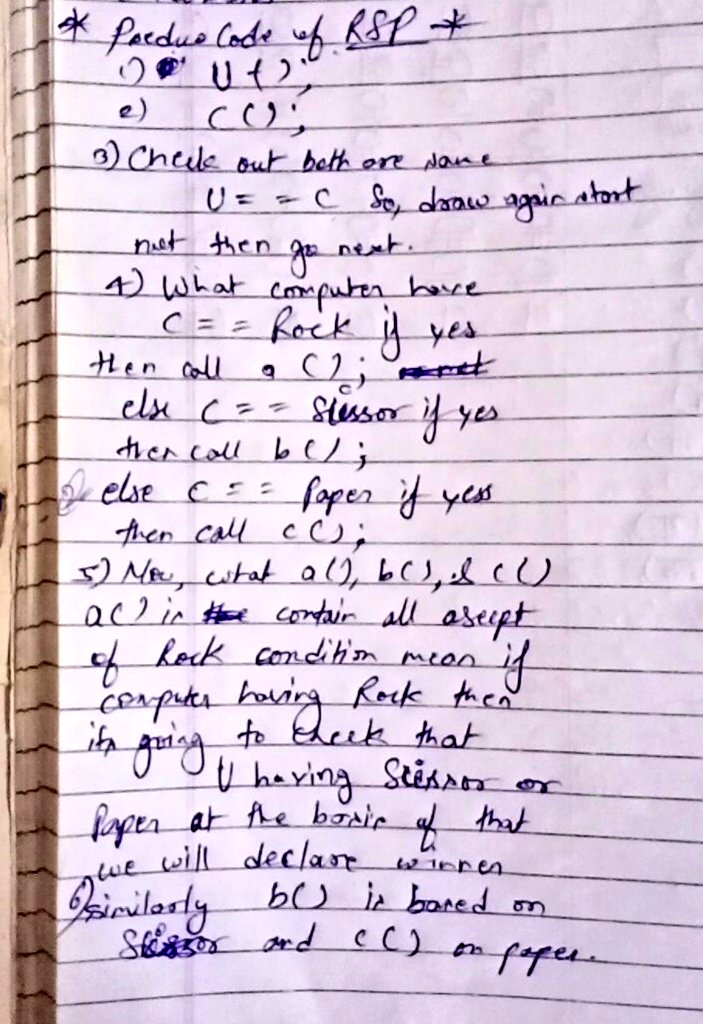 * Pseduo Code of RSP *
1) U();
2) C();
3) Check out both are same
U = = C So, draw again start
not then go next.
4) What computer have
C = = Rock if yes
then call a ();
else C = = Scissor if yes
then call b();
else C = = Paper if yess
then call c();
5) Now, what a(), b(), & c()
a() is contain all asecpt
of Rock condition mean if
computer having Rock then
its going to check that
U having Scissor or
Paper at the basis of that
we will declare winner
6) similarly b() is based on
Scissor and c() on paper.